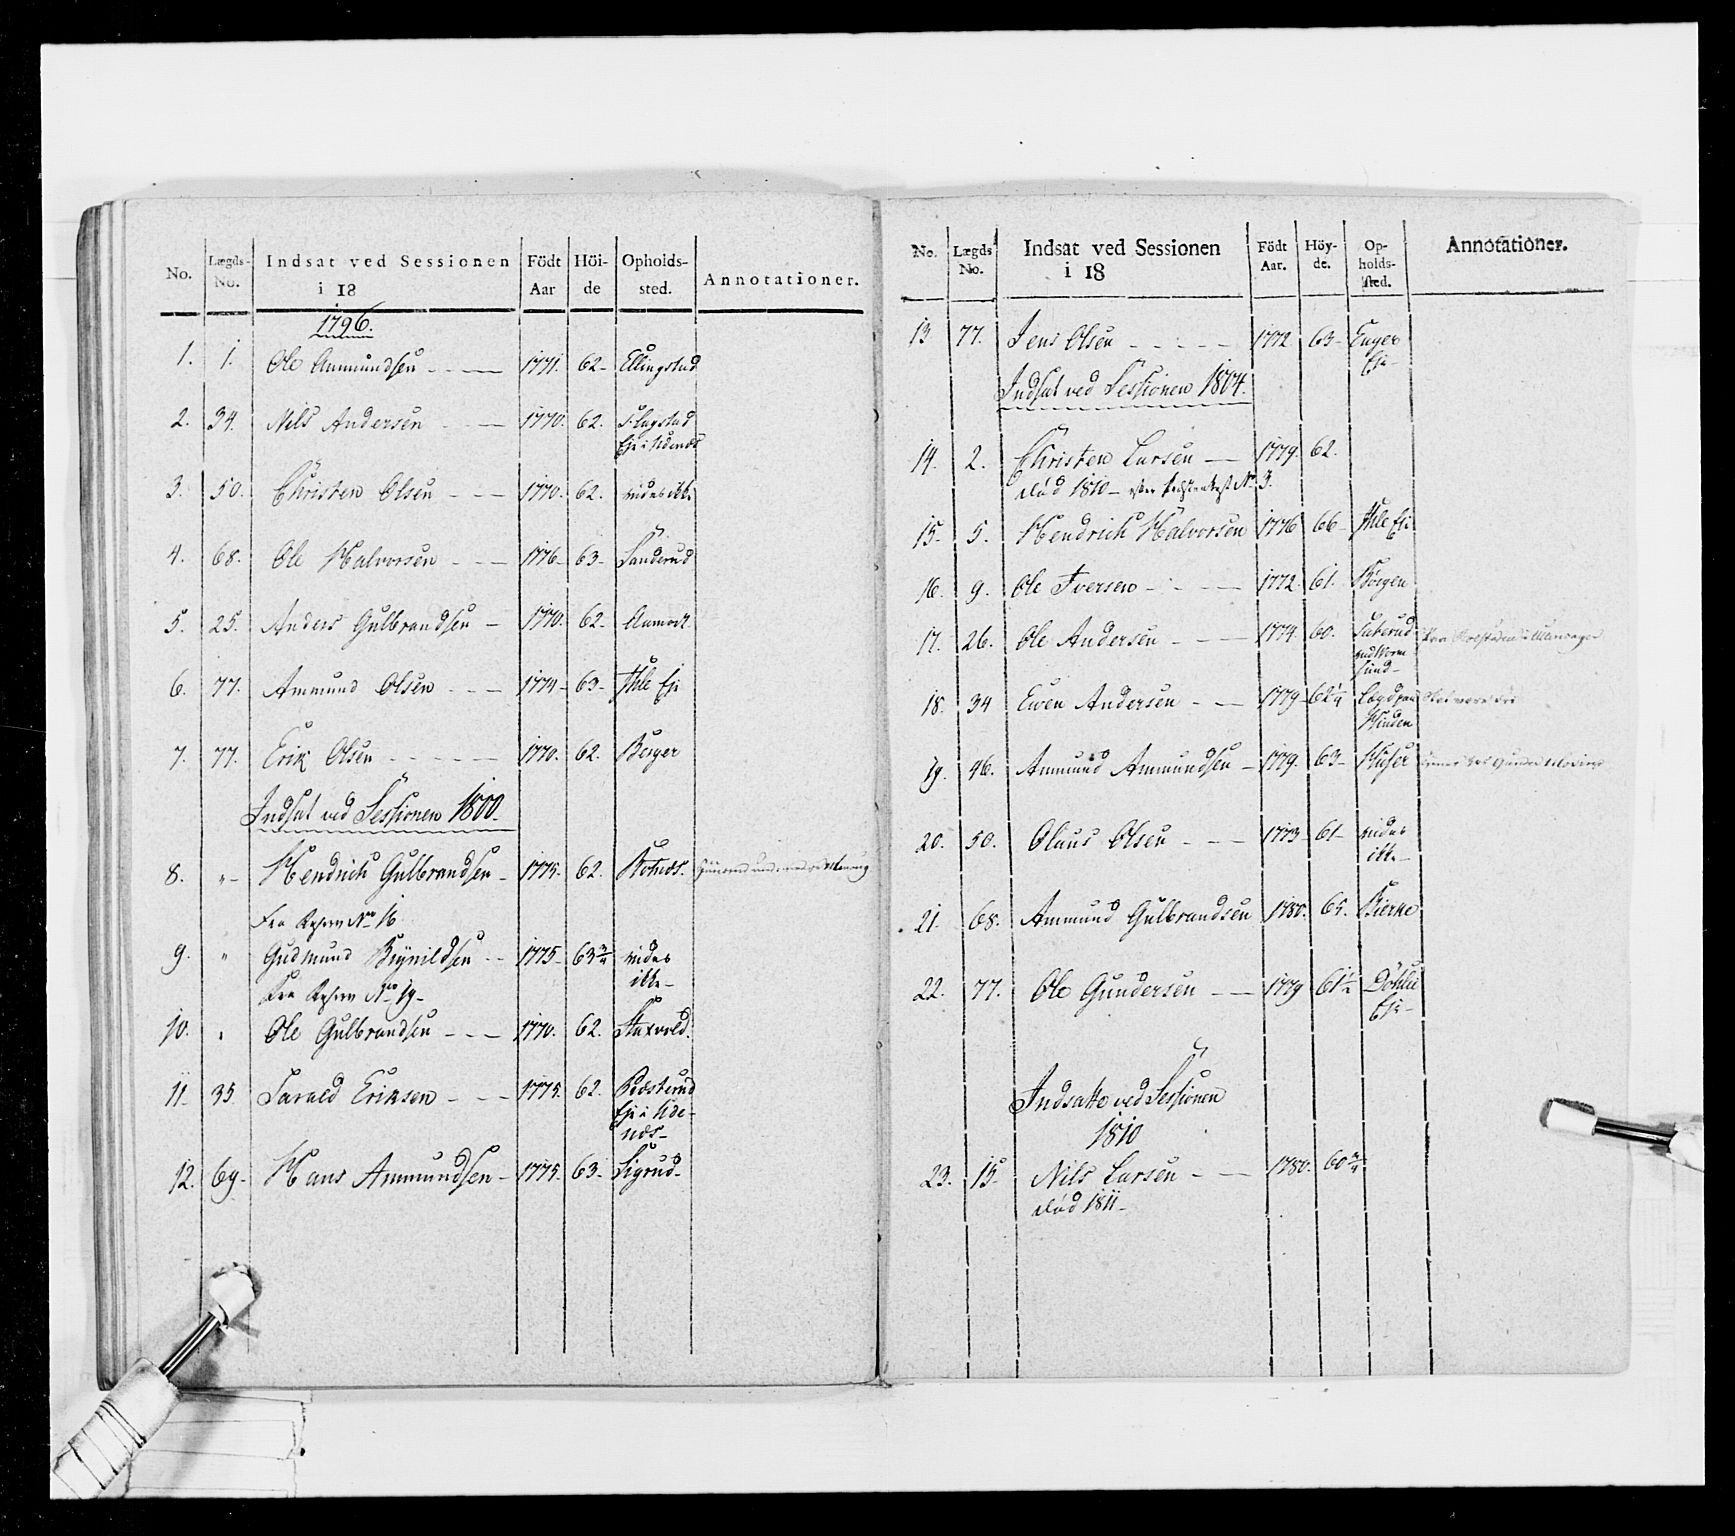 No. Lægds-No. Indsat ved Sessionen i 18 Födt Aar Höi-de Opholds-sted. Annotationer.
1796.
1. 1. Ole Ammundsen 1771. 62- Ellingstad
2. 34. Nils Andersen 1770. 62. Flagstad
Eje i Udenæs
3. 50. Christen Olsen 1770. 62. vides ikke
4. 68. Ole Halvorsen 1776- 63- Sanderud
5. 25. Anders Gulbrandsen 1770. 62-
6. 77. Ammund Olsen 1774- 63- Ihle Eje
7. 77. Erik Olsen 1770. 62. Berger
Indsat ved Sessionen 1800.
8. "- Hendrich Gulbrandsen 1775. 62. Rotnæs.
Fra No 16
9. " Gudmund Brynildsen 1775- 63 3/4 vides
Fra No 19- ikke-
10. " Ole Gulbrandsen 1770. 62.
11. 35 Tarald Eriksen 1775. 62.
Eje i Ude-
næs-
12. 69- Hans Ammundsen 1775. 63- Sigrud-
No. Lægds No. Indsat ved Sessionen i 18 Födt Aar. Höy-de. Op-holds-sted. Annotationer.
13 77. Jens Olsen 1772 63- Enger
Eje-
Indsat ved Sessionen 1804.
14. 2. Christen Larsen 1779. 62.
død 1810- No 3.
15- 5. Hendrich Halvorsen 1776 66- Ihle Eje
16. 9. Ole Iversen 1772. 61. Børgen
17. 26. Ole Andersen 1774. 60. Saterud
ved Worm
sund-
18. 34 Even Andersen 1779- 62 1/4
19. 46. Ammund Ammundsen 1779. 63-
20. 50. Olaus Olsen 1773- 61- vides
ikke-
21. 68. Ammund Gulbrandsen 1780. 65. Bierke
22. 77. Ole Gundersen 1779 61 1/2 Döhlie
Eje-
Indsatte ved Sessionen
1810
23. 15- Nils Larsen 1780. 60 3/4
død 1811-